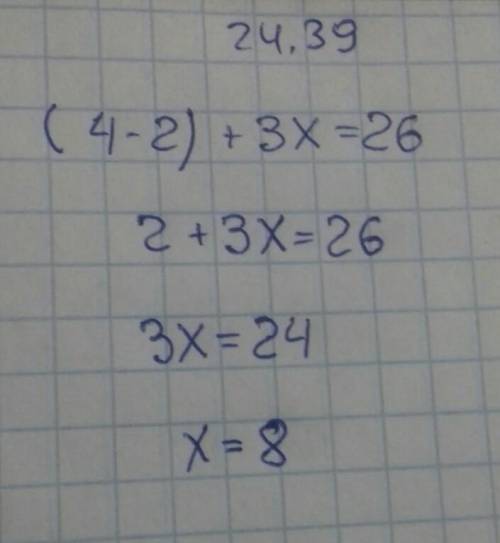 24.39
(4-2) + 3x = 26
2 + 3x = 26
3x = 24
x = 8